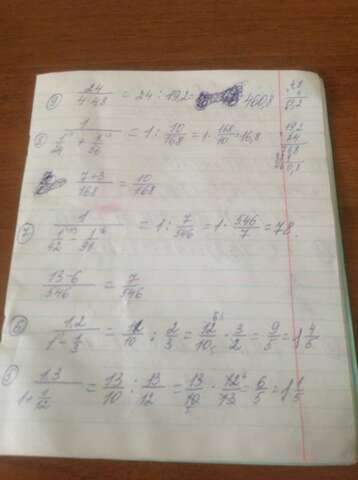 9) 24/(4·4,8) = 24 : 19,2 = 460,8
4,8
4
19,2
8) 1/(1/24 + 1/56) = 1 : 10/168 = 1 · 168/10 = 16,8
19,2
24
768
460,8
(7+3)/168 = 10/168
7) 1/(1/42 - 1/91) = 1 : 7/546 = 1 · 546/7 = 78.
(13-6)/546 = 7/546
6) 1,2/(1 - 1/3) = 12/10 : 2/3 = 12/10 · 3/2 = 9/5 = 1 4/5
5) 1,3/(1+ 1/12) = 13/10 : 13/12 = 13/10 · 12/13 = 6/5 = 1 1/5